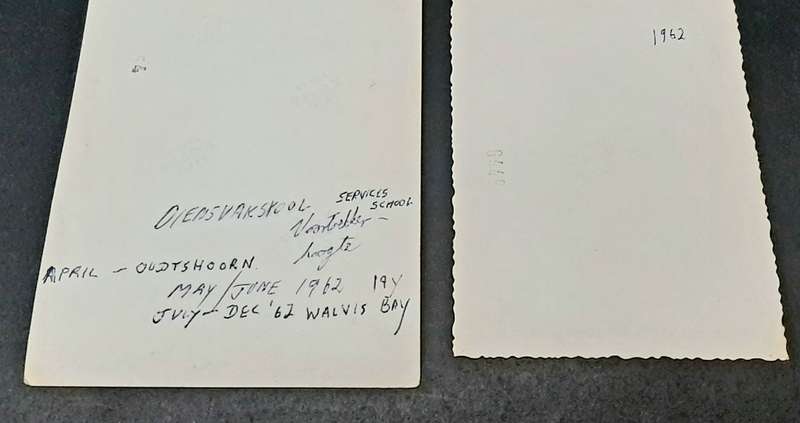 DIENSVAKSKOOL SERVICES SCHOOL
Voortrekker-
hoogte
APRIL - OUDTSHOORN.
MAY/JUNE 1962 19y
JULY - DEC '62 WALVIS BAY
1962